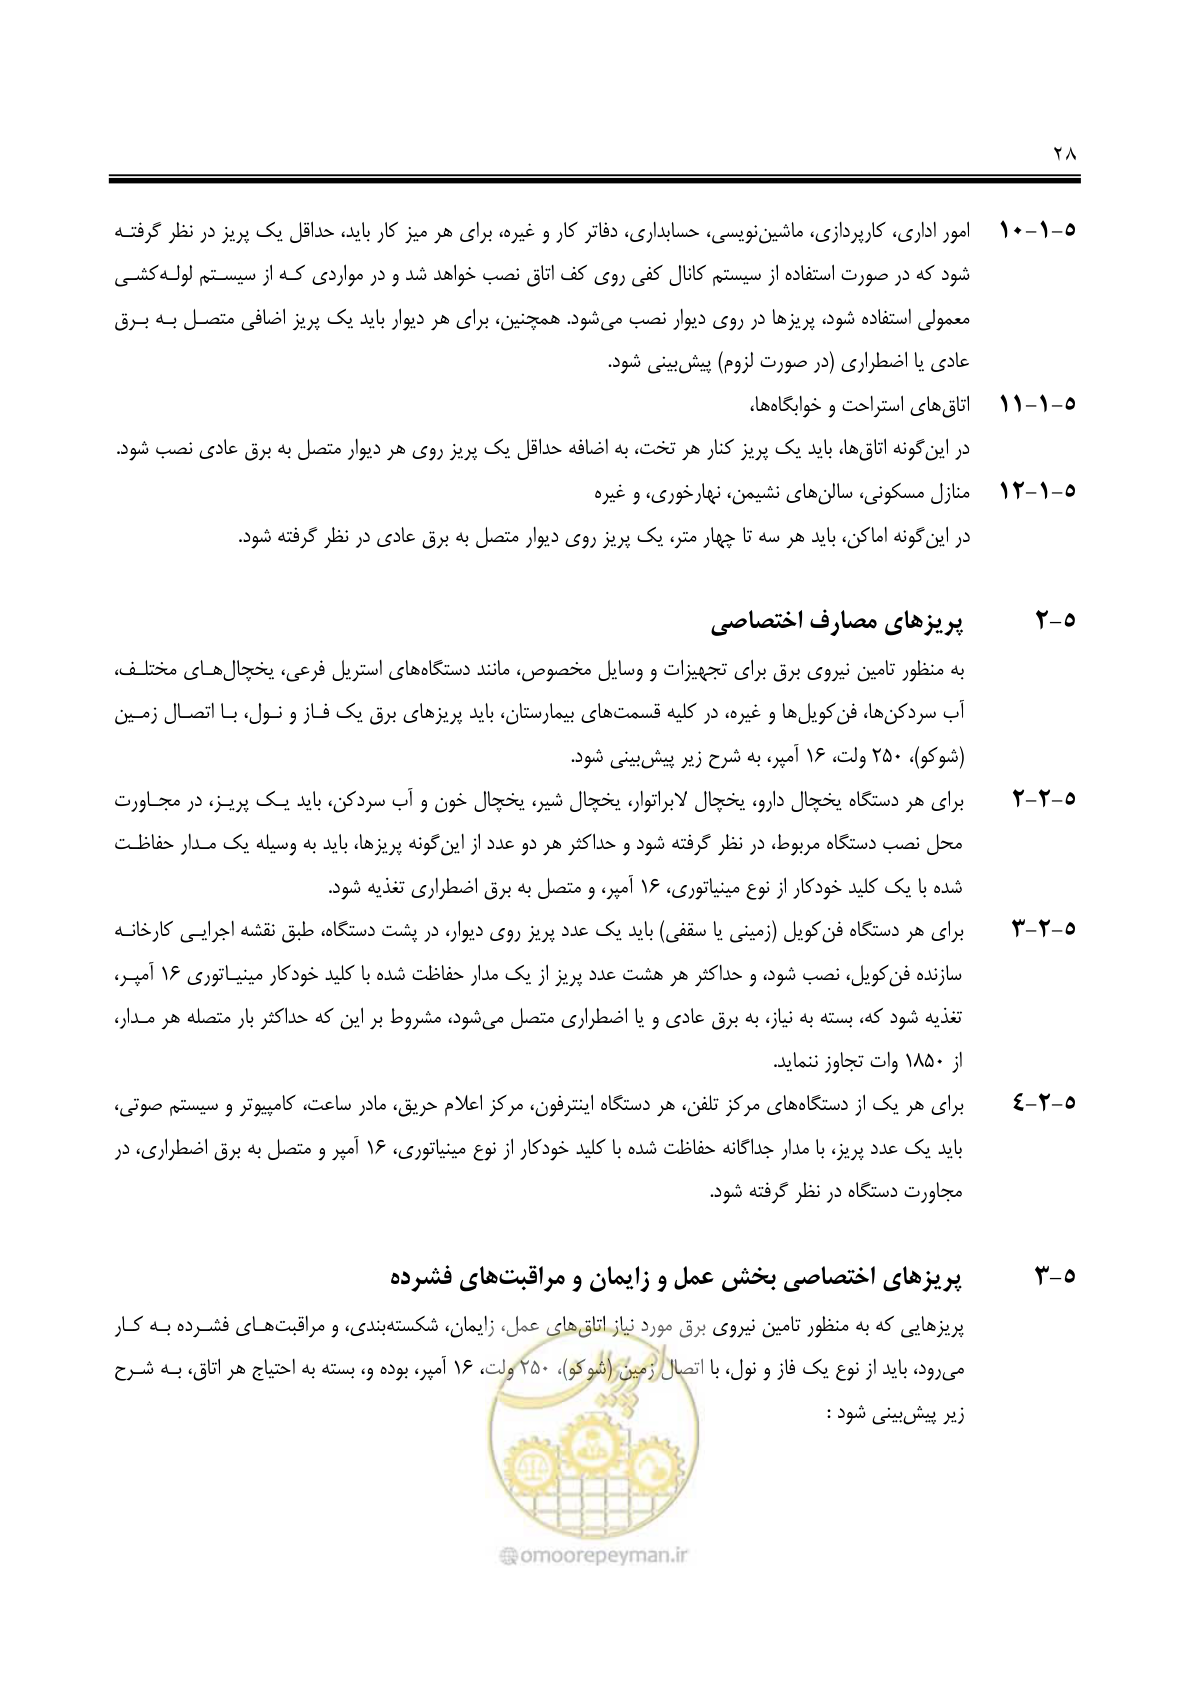 ۲۸
۵-۱-۱۰ امور اداری، کارپردازی، ماشین‌نویسی، حسابداری، دفاتر کار و غیره، برای هر میز کار باید، حداقل یک پریز در نظر گرفته
شود که در صورت استفاده از سیستم کانال کفی روی کف اتاق نصب خواهد شد و در مواردی که از سیستم لوله‌کشی
معمولی استفاده شود، پریزها در روی دیوار نصب می‌شود. همچنین، برای هر دیوار باید یک پریز اضافی متصل به برق
عادی یا اضطراری (در صورت لزوم) پیش‌بینی شود.
۵-۱-۱۱ اتاق‌های استراحت و خوابگاه‌ها،
در این‌گونه اتاق‌ها، باید یک پریز کنار هر تخت، به اضافه حداقل یک پریز روی هر دیوار متصل به برق عادی نصب شود.
۵-۱-۱۲ منازل مسکونی، سالن‌های نشیمن، نهارخوری، و غیره
در این‌گونه اماکن، باید هر سه تا چهار متر، یک پریز روی دیوار متصل به برق عادی در نظر گرفته شود.
۵-۲ پریزهای مصارف اختصاصی
به منظور تامین نیروی برق برای تجهیزات و وسایل مخصوص، مانند دستگاه‌های استریل فرعی، یخچال‌های مختلف،
آب سردکن‌ها، فن‌کویل‌ها و غیره، در کلیه قسمت‌های بیمارستان، باید پریزهای برق یک فاز و نول، با اتصال زمین
(شوکو)، ۲۵۰ ولت، ۱۶ آمپر، به شرح زیر پیش‌بینی شود.
۵-۲-۲ برای هر دستگاه یخچال دارو، یخچال لابراتوار، یخچال شیر، یخچال خون و آب سردکن، باید یک پریز، در مجاورت
محل نصب دستگاه مربوط، در نظر گرفته شود و حداکثر هر دو عدد از این‌گونه پریزها، باید به وسیله یک مدار حفاظت
شده با یک کلید خودکار از نوع مینیاتوری، ۱۶ آمپر، و متصل به برق اضطراری تغذیه شود.
۵-۲-۳ برای هر دستگاه فن‌کویل (زمینی یا سقفی) باید یک عدد پریز روی دیوار، در پشت دستگاه، طبق نقشه اجرایی کارخانه
سازنده فن‌کویل، نصب شود، و حداکثر هر هشت عدد پریز از یک مدار حفاظت شده با کلید خودکار مینیاتوری ۱۶ آمپر،
تغذیه شود که، بسته به نیاز، به برق عادی و یا اضطراری متصل می‌شود، مشروط بر این که حداکثر بار متصله هر مدار،
از ۱۸۵۰ وات تجاوز ننماید.
۵-۲-۴ برای هر یک از دستگاه‌های مرکز تلفن، هر دستگاه اینترفون، مرکز اعلام حریق، مادر ساعت، کامپیوتر و سیستم صوتی،
باید یک عدد پریز، با مدار جداگانه حفاظت شده با کلید خودکار از نوع مینیاتوری، ۱۶ آمپر و متصل به برق اضطراری، در
مجاورت دستگاه در نظر گرفته شود.
۵-۳ پریزهای اختصاصی بخش عمل و زایمان و مراقبت‌های فشرده
پریزهایی که به منظور تامین نیروی برق مورد نیاز اتاق‌های عمل، زایمان، شکسته‌بندی، و مراقبت‌های فشرده به کار
می‌رود، باید از نوع یک فاز و نول، با اتصال زمین (شوکو)، ۲۵۰ ولت، ۱۶ آمپر، بوده و، بسته به احتیاج هر اتاق، به شرح
زیر پیش‌بینی شود :
امور پیمان
omoorepeyman.ir